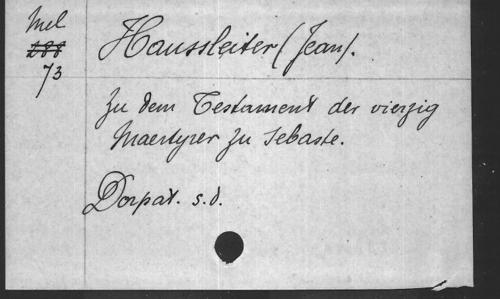 Mel
288
73
Haussleiter (Jean).
Zu dem Testament der vierzig
Maertyrer zu Sebaste.
Dorpat. s.d.